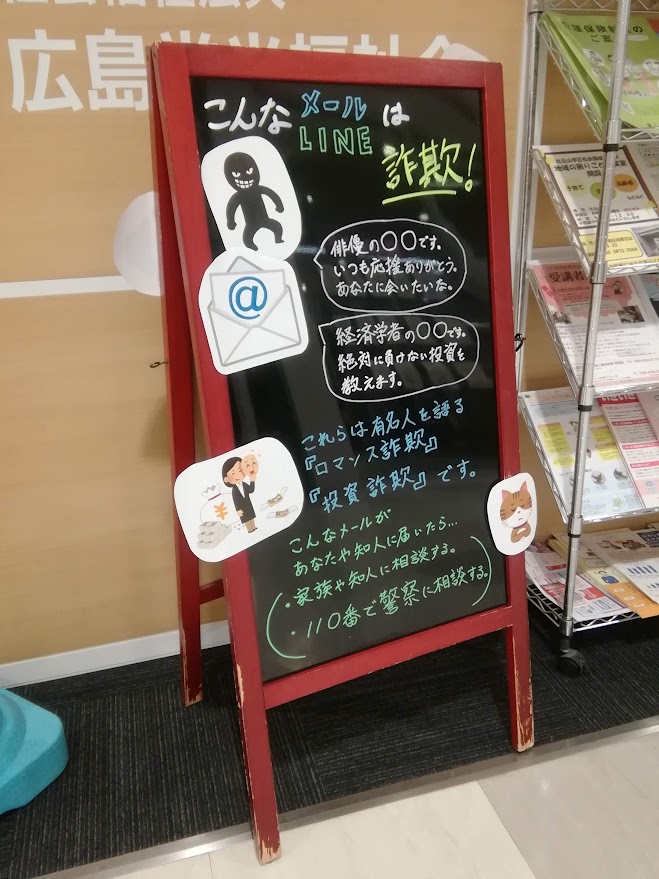 広島
こんな メール は
LINE
詐欺!
@
俳優の〇〇です。
いつも応援ありがとう。
あなたに会いたいな。
経済学者の〇〇です。
絶対に負けない投資を
教えます。
これらは有名人を語る
『ロマンス詐欺』
『投資詐欺』です。
¥
こんなメールが
あなたや知人に届いたら…
・家族や知人に相談する。
・110番で警察に相談する。